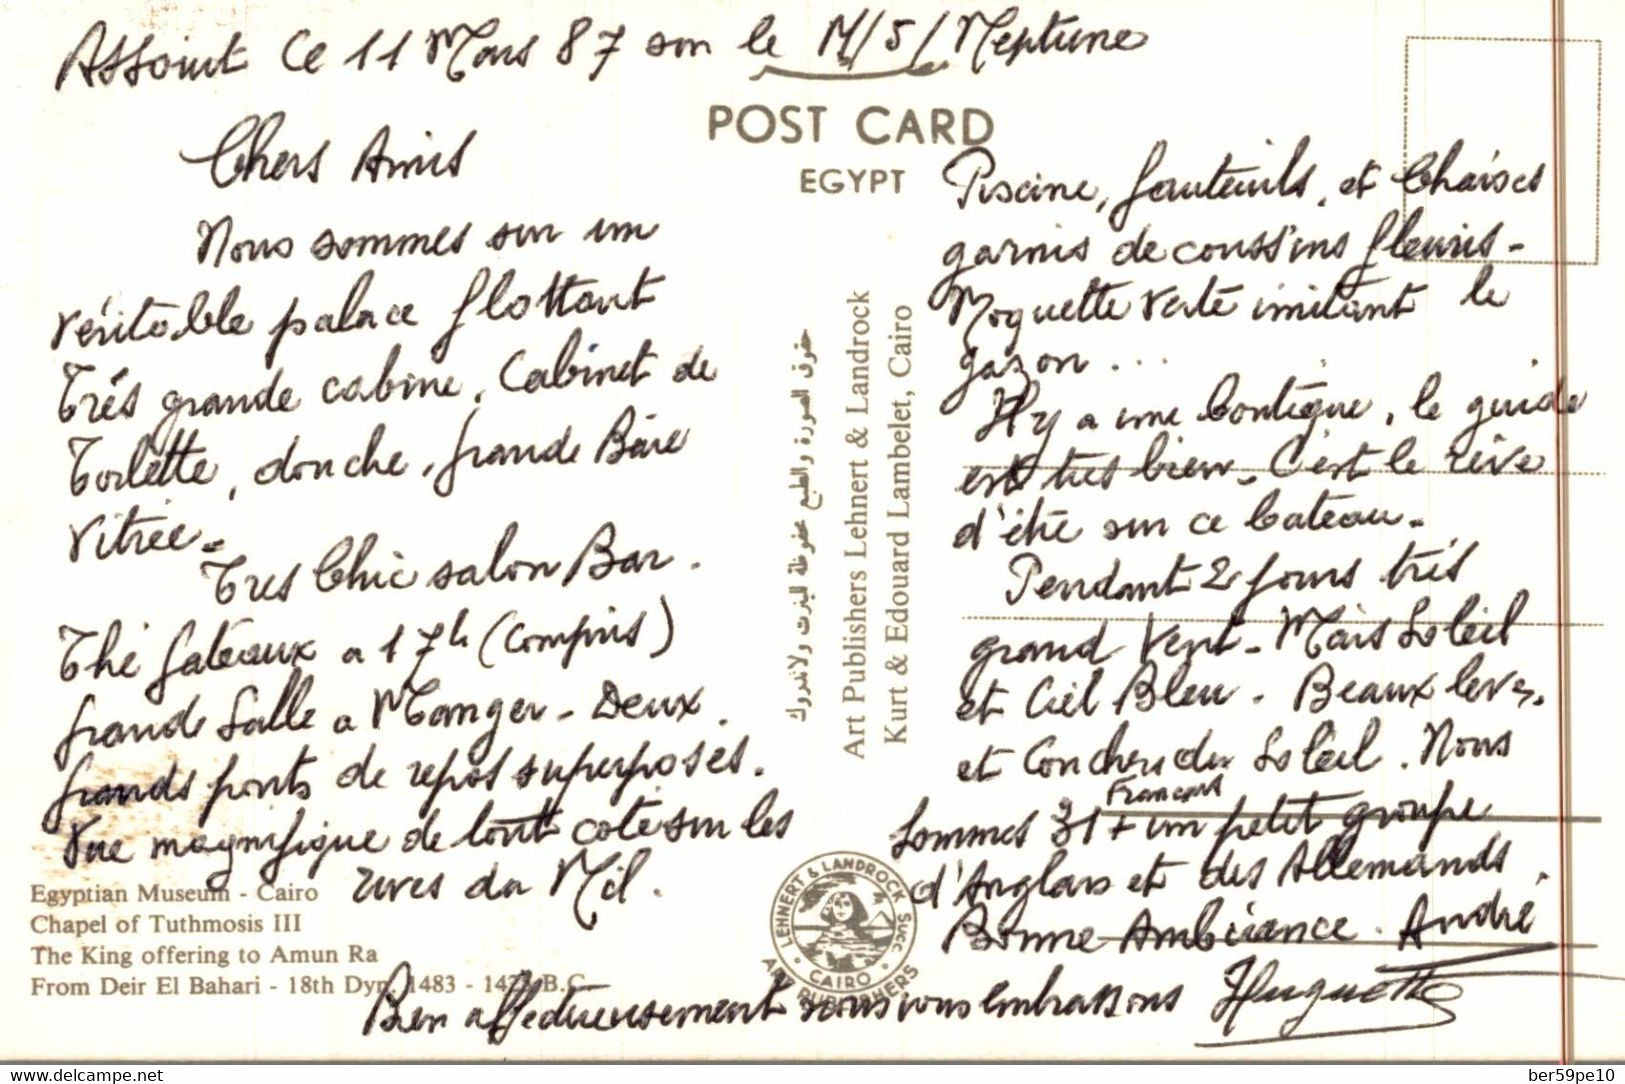 Assouit Ce 11 Mars 87 sur le M/S/Neptune
POST CARD
EGYPT
Chers Amis
Nous sommes sur un
véritable palace flottant
Très grande cabine, Cabinet de
Toilette, douche, grande Baie
Vitrée-
Très Chic salon Bar.
Thé gateaux a 17h (compris)
grande Salle a Manger - Deux
grands ponts de repos superposés.
Vue magnifique de tout coté sur les
rives du Nil.
Egyptian Museum - Cairo
Chapel of Tuthmosis III
The King offering to Amun Ra
From Deir El Bahari - 18th Dyn. 1483 - B.C.
حقوق الصورة والطبع محفوظة لينرت ولاندروك
Art Publishers Lehnert & Landrock
Kurt & Edouard Lambelet, Cairo
LEHNERT & LANDROCK SUCC.
CAIRO
ART PUBLISHERS
Piscine, fauteuils, et Chaises
garnis de coussins fleuris-
Moquette verte imitant le
gazon ...
Il y a une boutique, le guide
est très bien. C'est le rêve
d'été sur ce bateau.
Pendant 2 jours très
grand Vent- Mais Soleil
et Ciel Bleu. Beaux levers
et Couchers du Soleil. Nous
Français
Sommes 31 + un petit groupe
d'Anglais et des Allemands.
Bonne Ambiance. André
Bien affectueusement nous vous embrassons Huguette
delcampe.net
ber59pe10